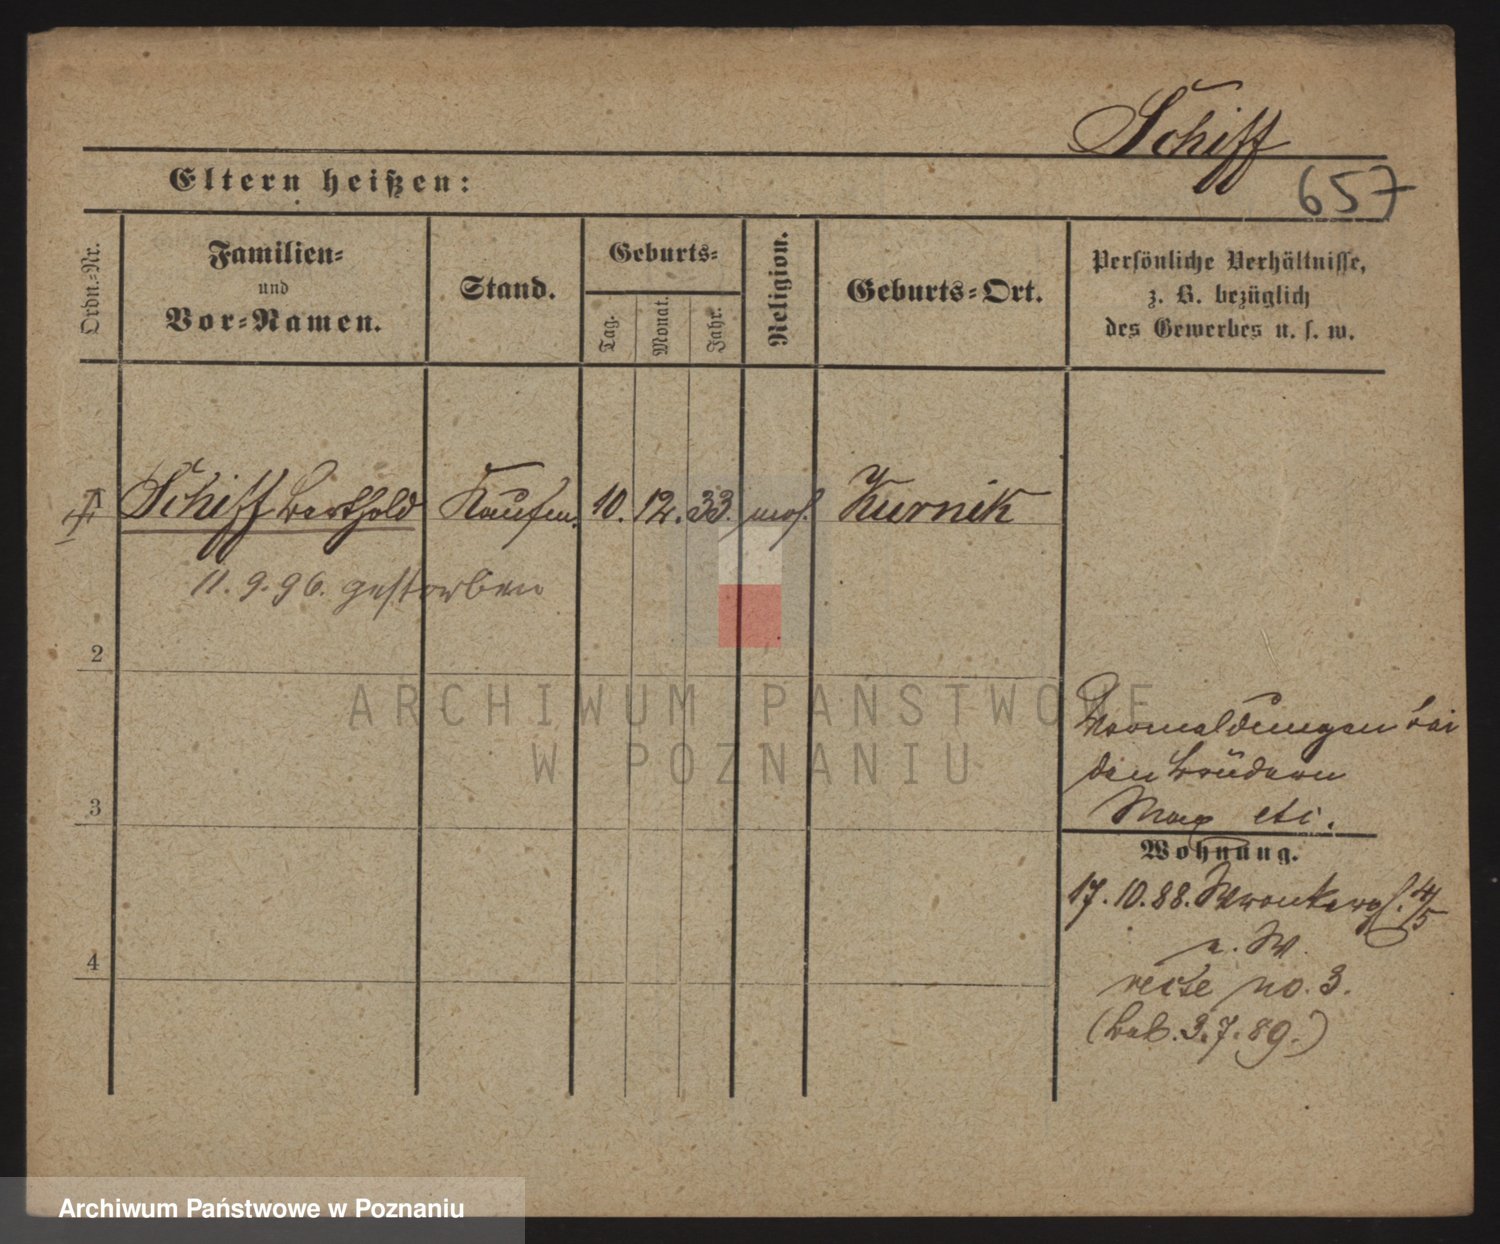 Schiff
Eltern heißen:
657
Ordn.-Nr.
Familien-
und
Vor-Namen.
Stand.
Geburts-
Tag.
Monat.
Jahr.
Religion.
Geburts-Ort.
Persönliche Verhältnisse,
z. B. bezüglich
des Gewerbes u. s. w.
Schiff Berthold Kaufm. 10. 12. 33. mos. Kurnik
11. 9. 96. gestorben
2
3
4
Vormeldungen bei
den Brüdern
Max etc.
Wohnung.
17. 10. 88. Wronkergs. 4/5
a. W.
recte no. 3.
(bab. 3. 7. 89.)
ARCHIWUM PAŃSTWOWE
W POZNANIU
Archiwum Państwowe w Poznaniu